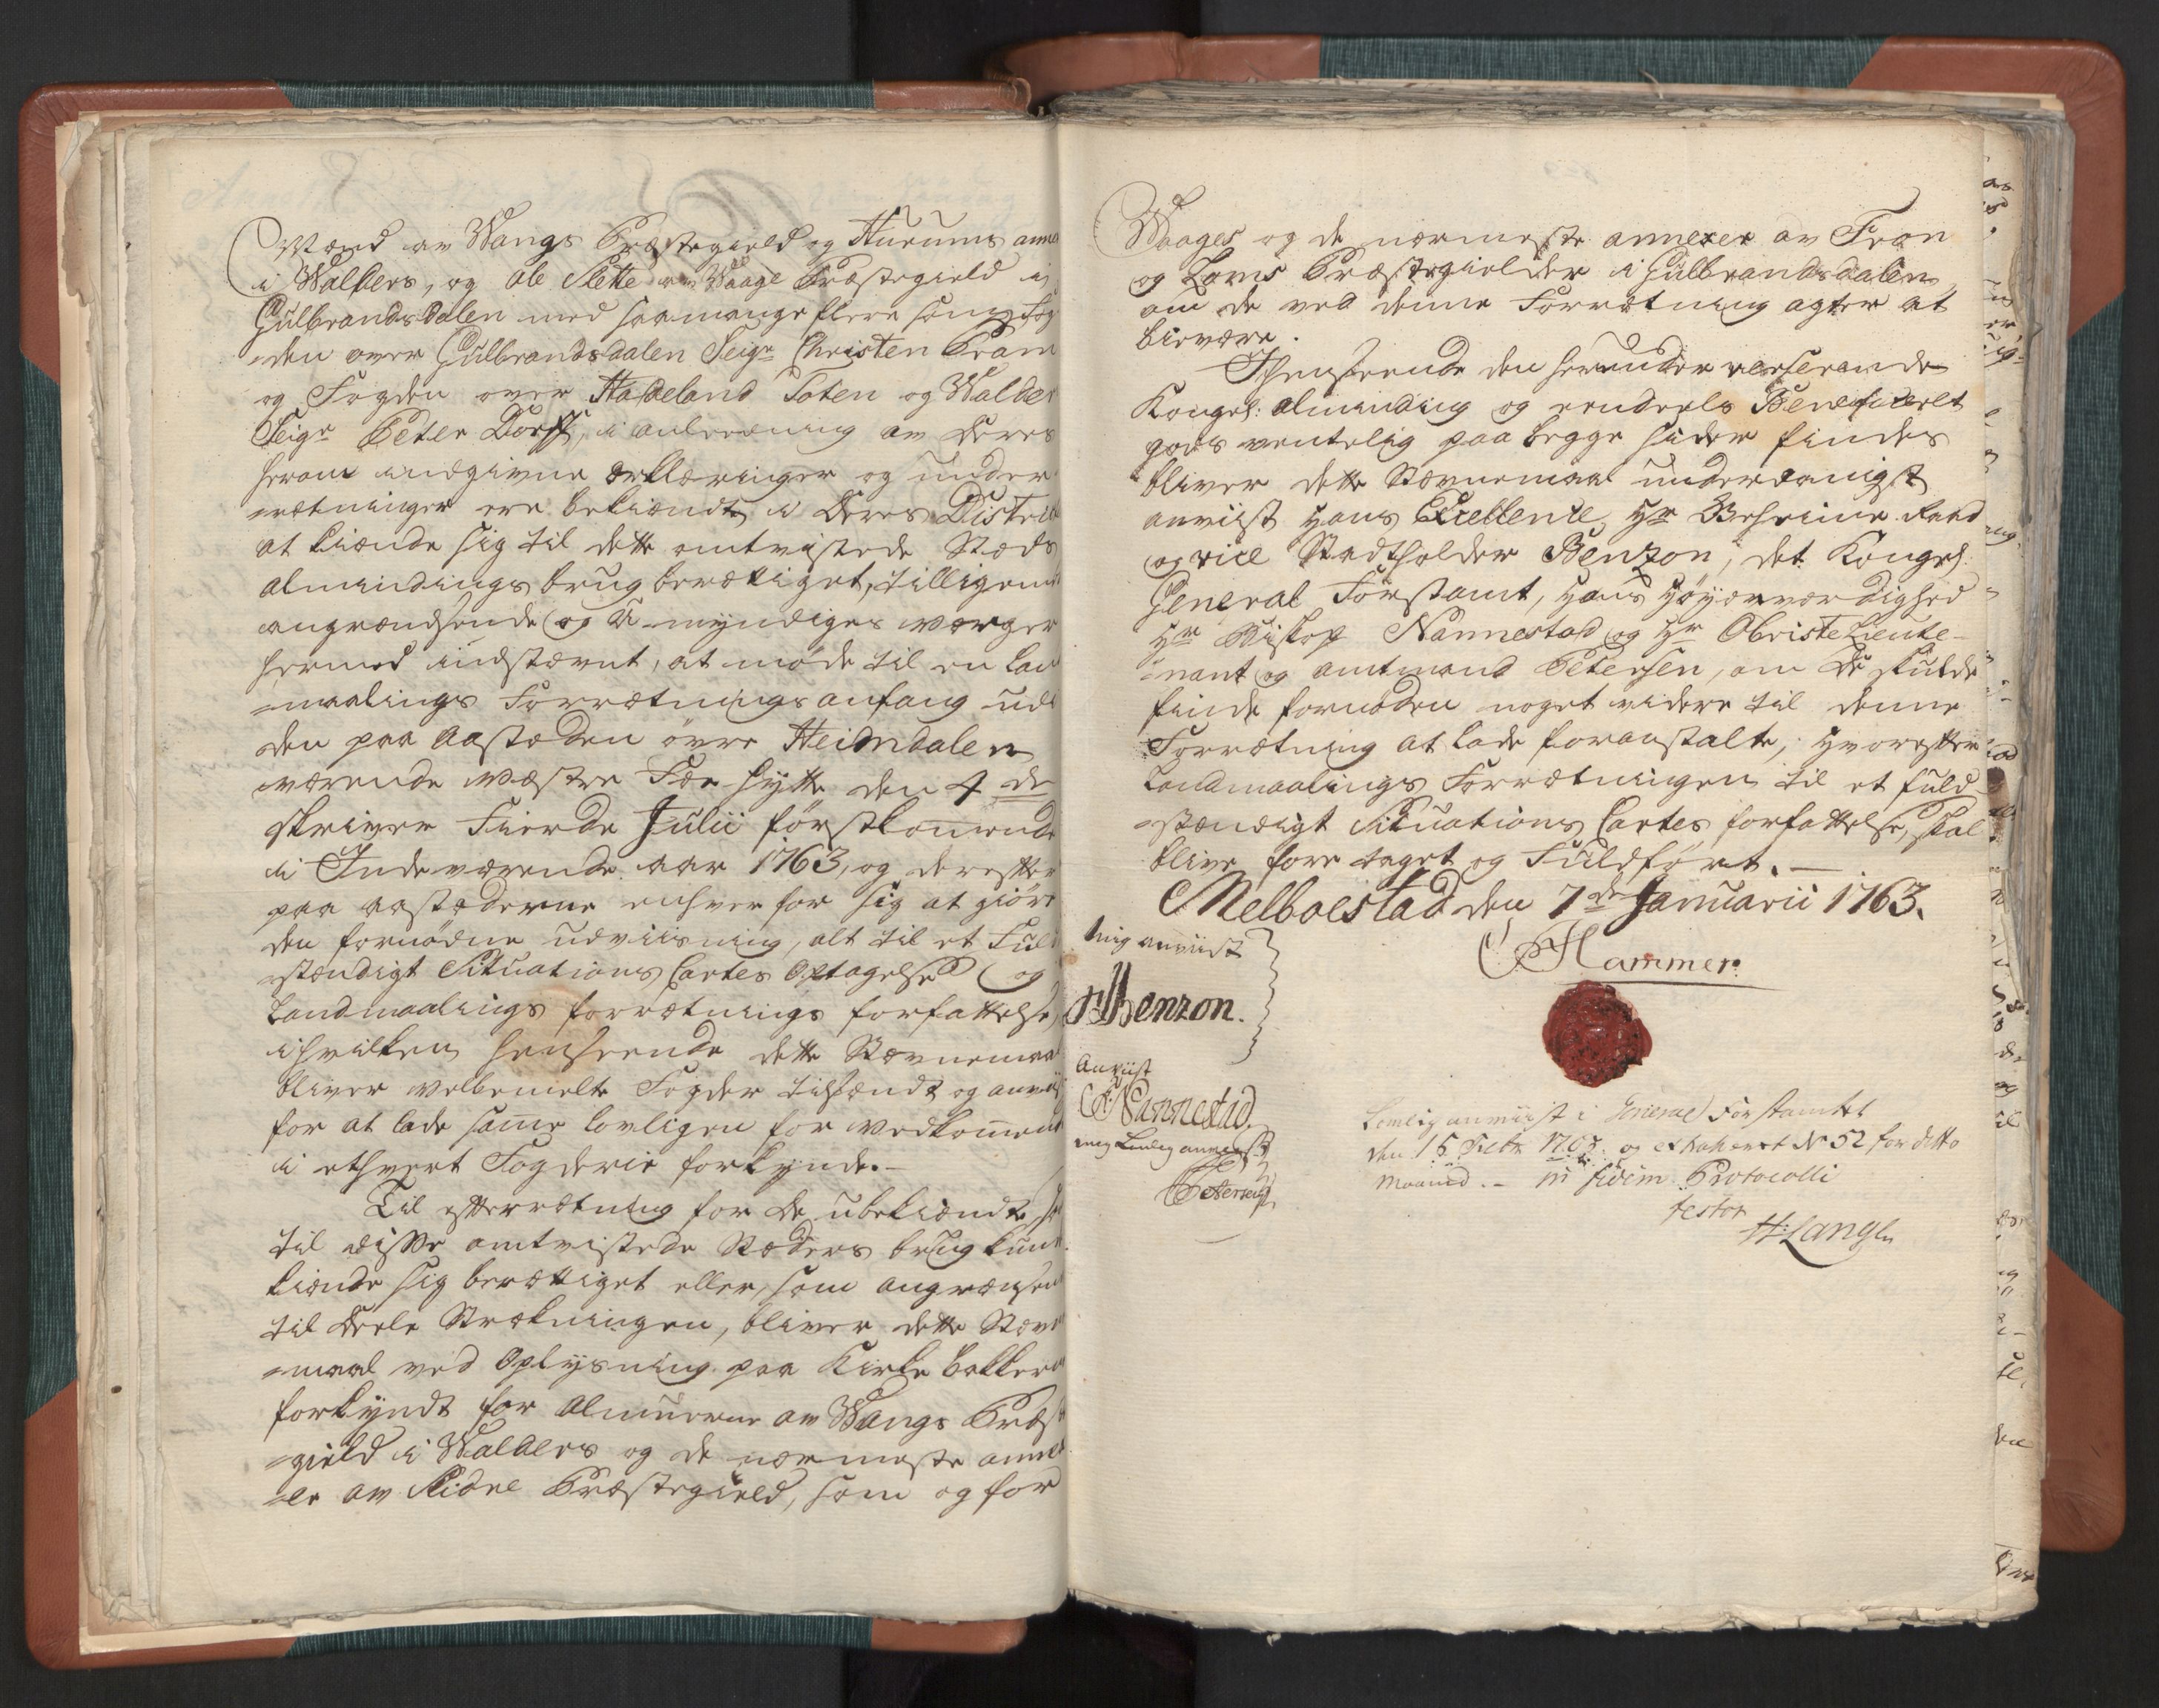 Mænd av Wangs Præstegield og Hurums annex
i Walders, og Ole Slette av Waage Præstegield i
Gulbrandsdalen med saa mange flere som Fog
-den over Gulbrandsdalen Seigr Christen Pram
og Fogden over Hadeland Toten og Walders
Seigr Peter Dorff, i anledning av Deres
herom indgivne erklæringer og under-
-rætninger ere bekiændt i Deres District
at kiænde sig til dette omtvistede Stæds
almindings brug berættiget, tilligemed
angrændsende og U-myndiges værger
hermed indstævnt, at møde til en Land
-maalings Forrætnings anfang udi
den paa Aastæden øvre Heimdalen
værende væstre Fæe hytte den 4de
skriver Fierde Julii førstkommende
i Indeværende aar 1763, og derefter
paa aastæderne enhver for sig at giøre
den fornødne udviisning, alt til et Fuld
-stændigt Situations Cartes Optagelse og
Landmaalings forrætnings forfattelse,
i hvilken henseende dette Stævnemaal
bliver velbemelte Fogder tilsændt og anviist
for at lade samme lovligen for vedkommende
i ethvert Fogderie forkynde.-
Til efterrætning for de ubekiændte, som
til disse omtvistede Stæders brug kunde
kiende sig berættiget eller, som angrænsende
til Deele Strækningen, bliver dette Stævne
-maal ved Oplysning paa Kirke bakkerne
forkyndt for Almuerne av Wangs Præste
-gield i Walders og de nærmeste annex
-er av Slidre Præstegield, som og for
Waages og de nærmeste annexer av Fron
og Loms Præstegielder i Gulbrandsdalen,
om de ved denne Forrætning agter at
bievære.
I henseende den herunder verserende
Kongel: alminding og eendeels Beneficeret
gods ventelig paa begge sider findes
bliver dette Stævnemaal underdanigst
anviist Hans Excellence Hr Geheime Raad
og vice Stadtholder Benzon, det Kongel:
General Forstamt, Hans Høyærværdighed
Hr Biskop Nannestad og Hr Obriste Lieute-
-nant og amtmand Petersen, om De skulde
finde fornøden noget videre til denne
Forrætning at lade foranstalte, hvorefter
Landmaalings Forrætningen til et fuld-
-stændigt Situations Cartes forfattelse, skal
blive fore taget og Fuldført.-
Melboestad den 7de Januarii 1763.
Hammer.
Mig anviist
Benzon.
Anviist
F: Nannestad.
mig Lovlig anviist
Petersen
Lovlig anviist i General Forstamtet
den 15 Febr 1763. og extraheret No 52 for ditto
Maaned.- in fidem Protocolli
testor
H: Lange